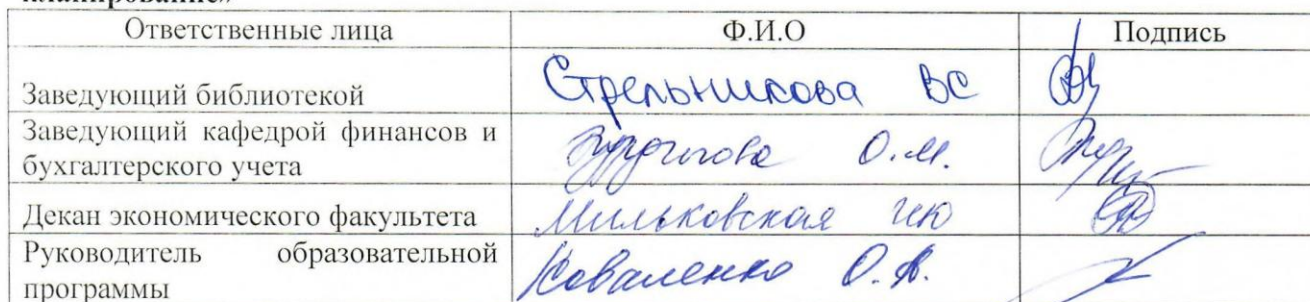 планирование»
Ответственные лица Ф.И.О Подпись
Заведующий библиотекой Стрельникова ВС
Заведующий кафедрой финансов и
бухгалтерского учета О.М.
Декан экономического факультета Мильковская ИЮ
Руководитель образовательной
программы Коваленко О.А.